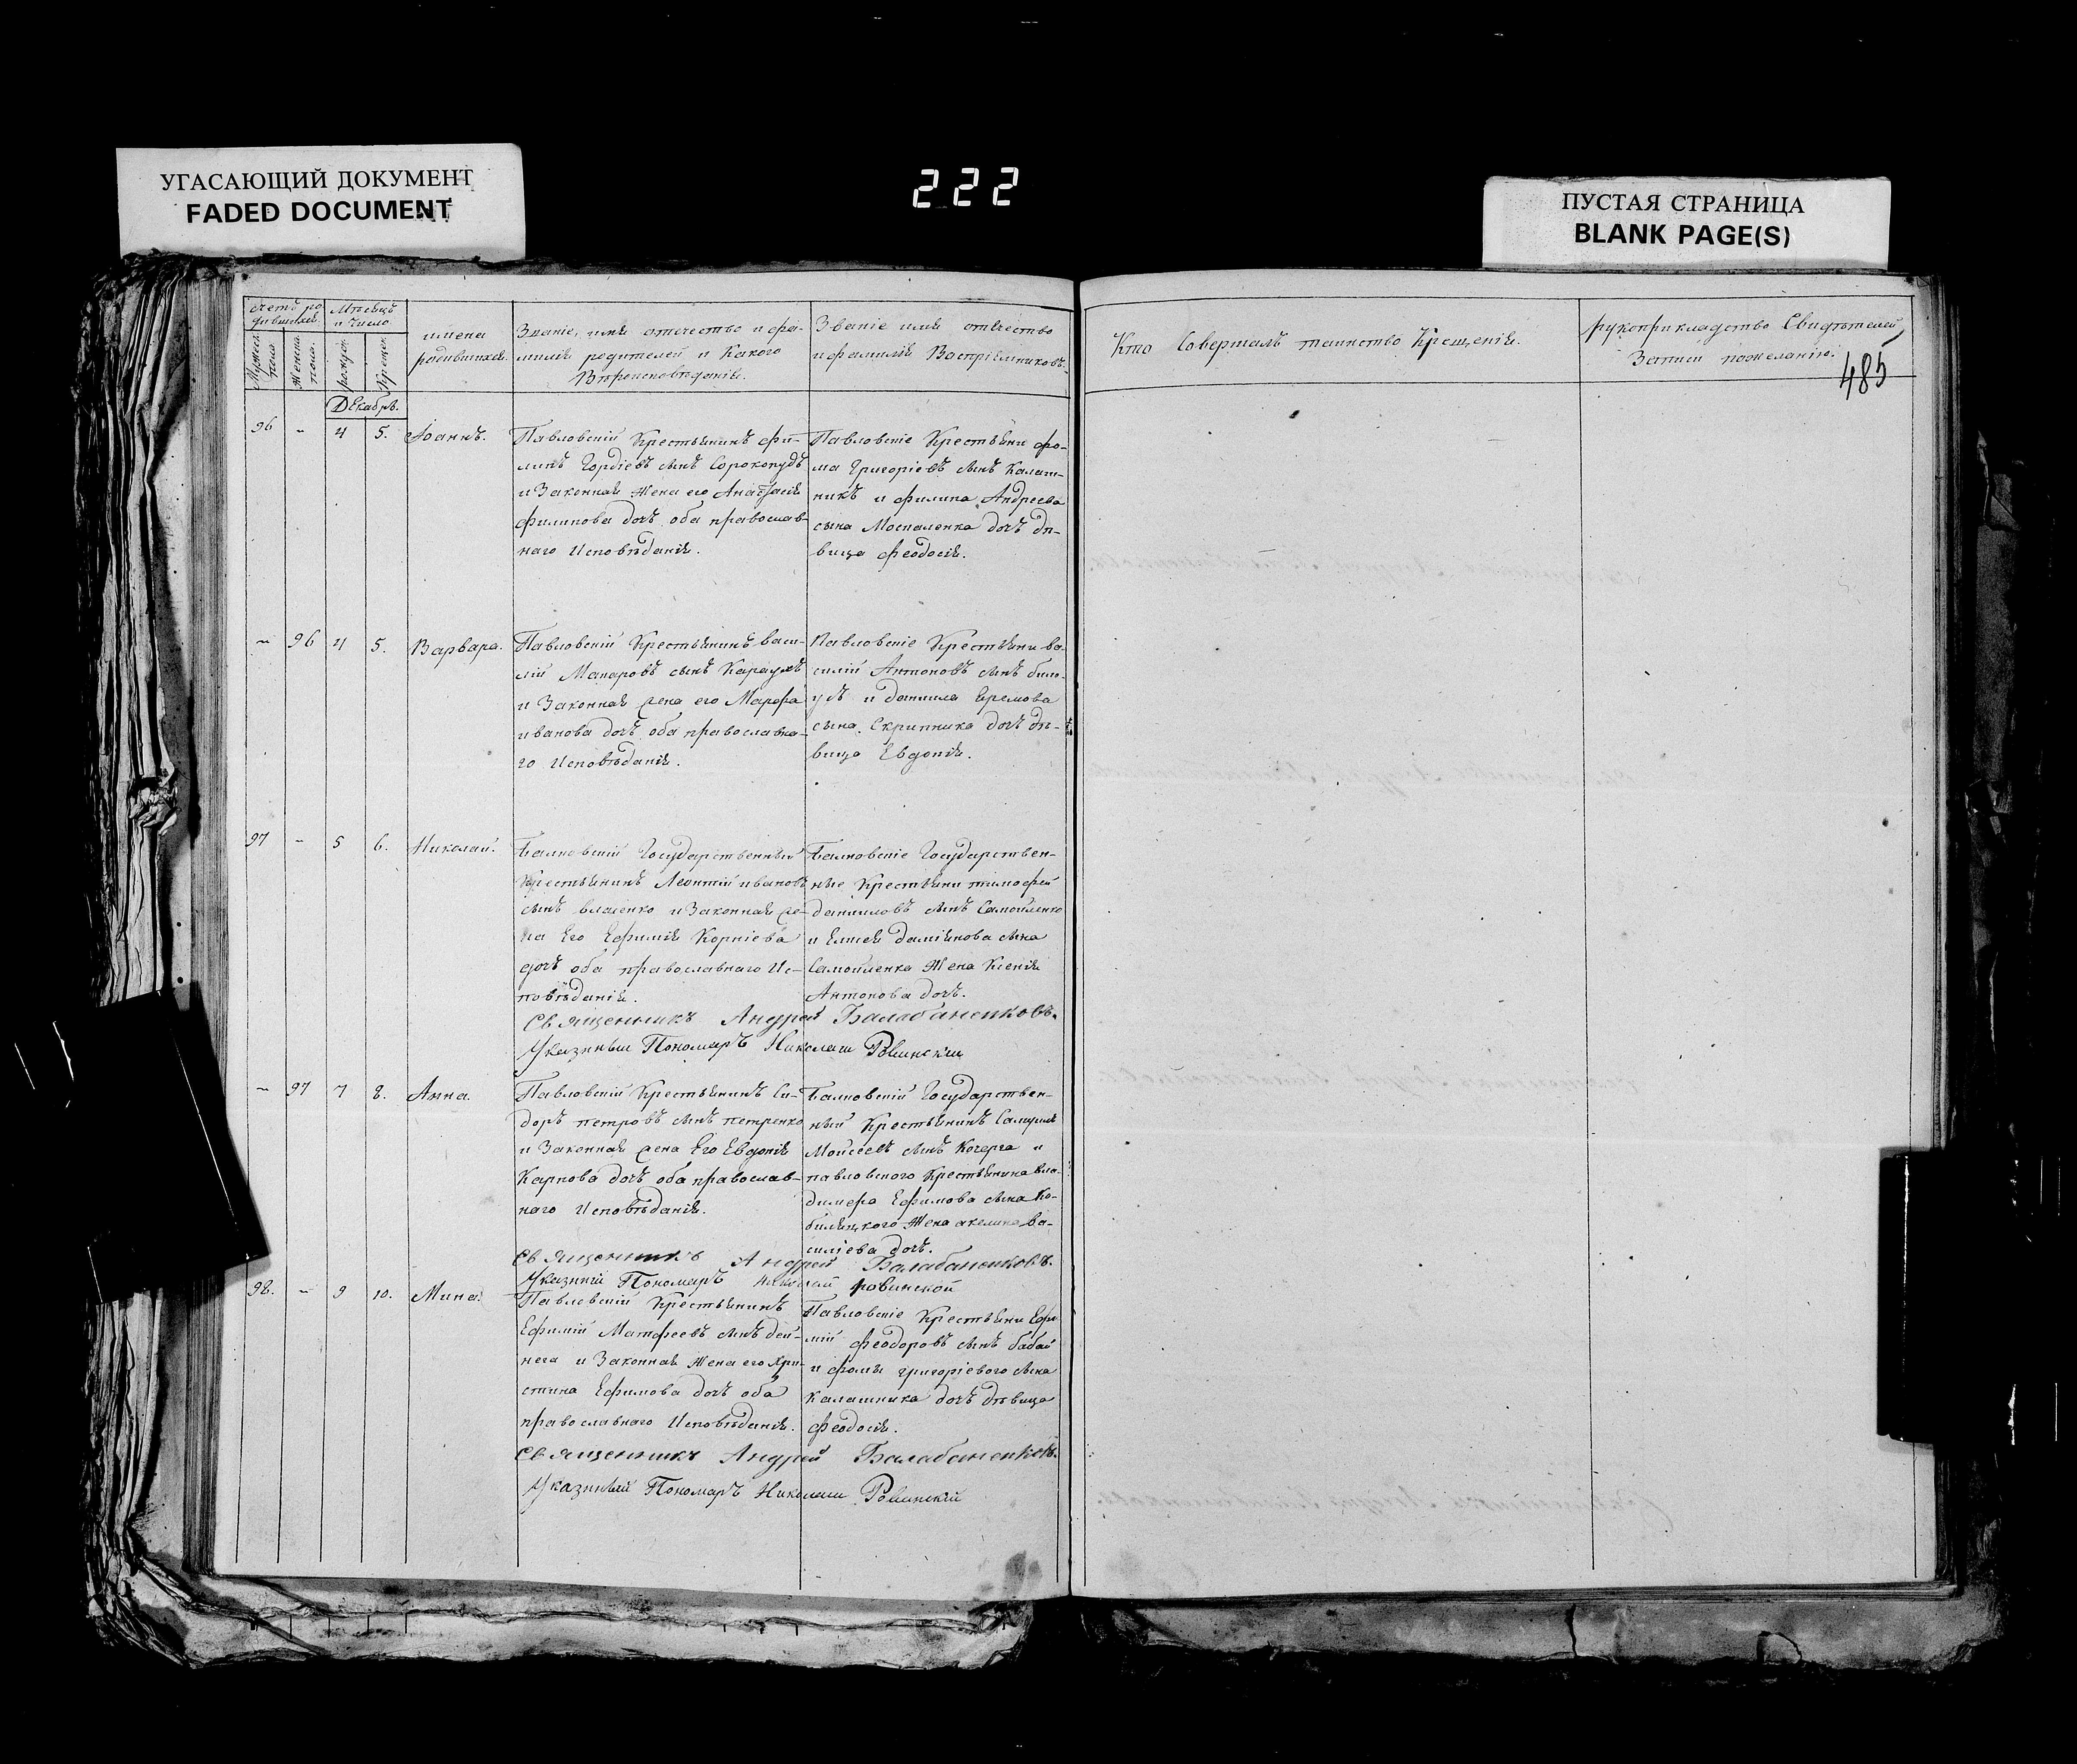 УГАСАЮЩИЙ ДОКУМЕНТ
FADED DOCUMENT
222
ПУСТАЯ СТРАНИЦА
BLANK PAGE(S)
485
счетъ ро-
дившихся.
Мужеска
пола.
Женска
пола.
Мѣсяцъ
и число
рожден.
крещен.
имена
родившихся.
Званіе, имя отечество и фа-
милія родителей и Какого
Вѣроисповѣданія.
Званіе имя отечество
и фамилія Воспріемниковъ.
Кто Совершалъ таинство Крещенія.
рукоприкладство Свидѣтелей
Записи пожеланію.
Декабрь.
96 - 4 5. Іоаннъ.
Павловскій Крестьянинъ Фи-
липъ Гордіевъ сынъ Сорокопудъ
и Законная Жена его Анастасія
филипова дочъ оба православ-
наго Исповѣданія.
Павловскіе Крестьяни фо-
ма Григоріевъ сынъ Калаш-
никъ и филипа Андреева
сына Москаленка дочъ дѣ-
вица Феодосія.
- 96 4 5. Варвара.
Павловскій Крестьянинъ васи-
лій Макаровъ сынъ Караулъ
и Законная жена его Марфа
иванова дочъ оба православна-
го Исповѣданія.
Павловскіе Крестьяни ва-
силій Антоновъ сынъ било-
усъ и данила Еремова
сына Скрипника дочъ дѣ-
вица Евдокія.
97 - 5 6. Николай.
Государственный
Крестьянинъ Леонтій ивановъ
сынъ власенко и Законная же-
на Его Ефимія Корніева
дочъ оба православнаго Ис-
повѣданія.
Государствен-
ные Крестьяни тимофей
даниловъ сынъ Самойленко
и Елисея даміянова сына
Самойленка Жена Ксенія
Антонова дочъ.
Священникъ Андрей Балабаненковъ.
Указный Пономаръ Николай Ровинскій
- 97 7 8. Анна.
Павловскій Крестьянинъ Си-
доръ петровъ сынъ петренко
и Законная жена Его Евдокія
Карпова дочъ оба православ-
наго Исповѣданія.
Государствен-
ный Крестьянинъ Самуилъ
Моисеевъ сынъ Кочерга и
павловского Крестьянина вла-
димера Ефимова сына Ко-
билѣцкого Жена акелина Ва-
силіева дочъ.
Священникъ Андрей Балабаненковъ.
Указный Пономаръ Николай Ровинской
98. - 9 10. Мина.
Павловскій Крестьянинъ
Ефимій Матфеевъ сынъ дей-
нега и Законная Жена его Хри-
стина Ефимова дочъ оба
православнаго Исповѣданія.
Павловскіе Крестьяни Ефи-
мій феодоровъ сынъ бабай
и фомы григоріевого сына
Калашника дочъ дѣвица
феодосія.
Священникъ Андрей Балабаненковъ.
Указный Пономаръ Николай Ровинскій